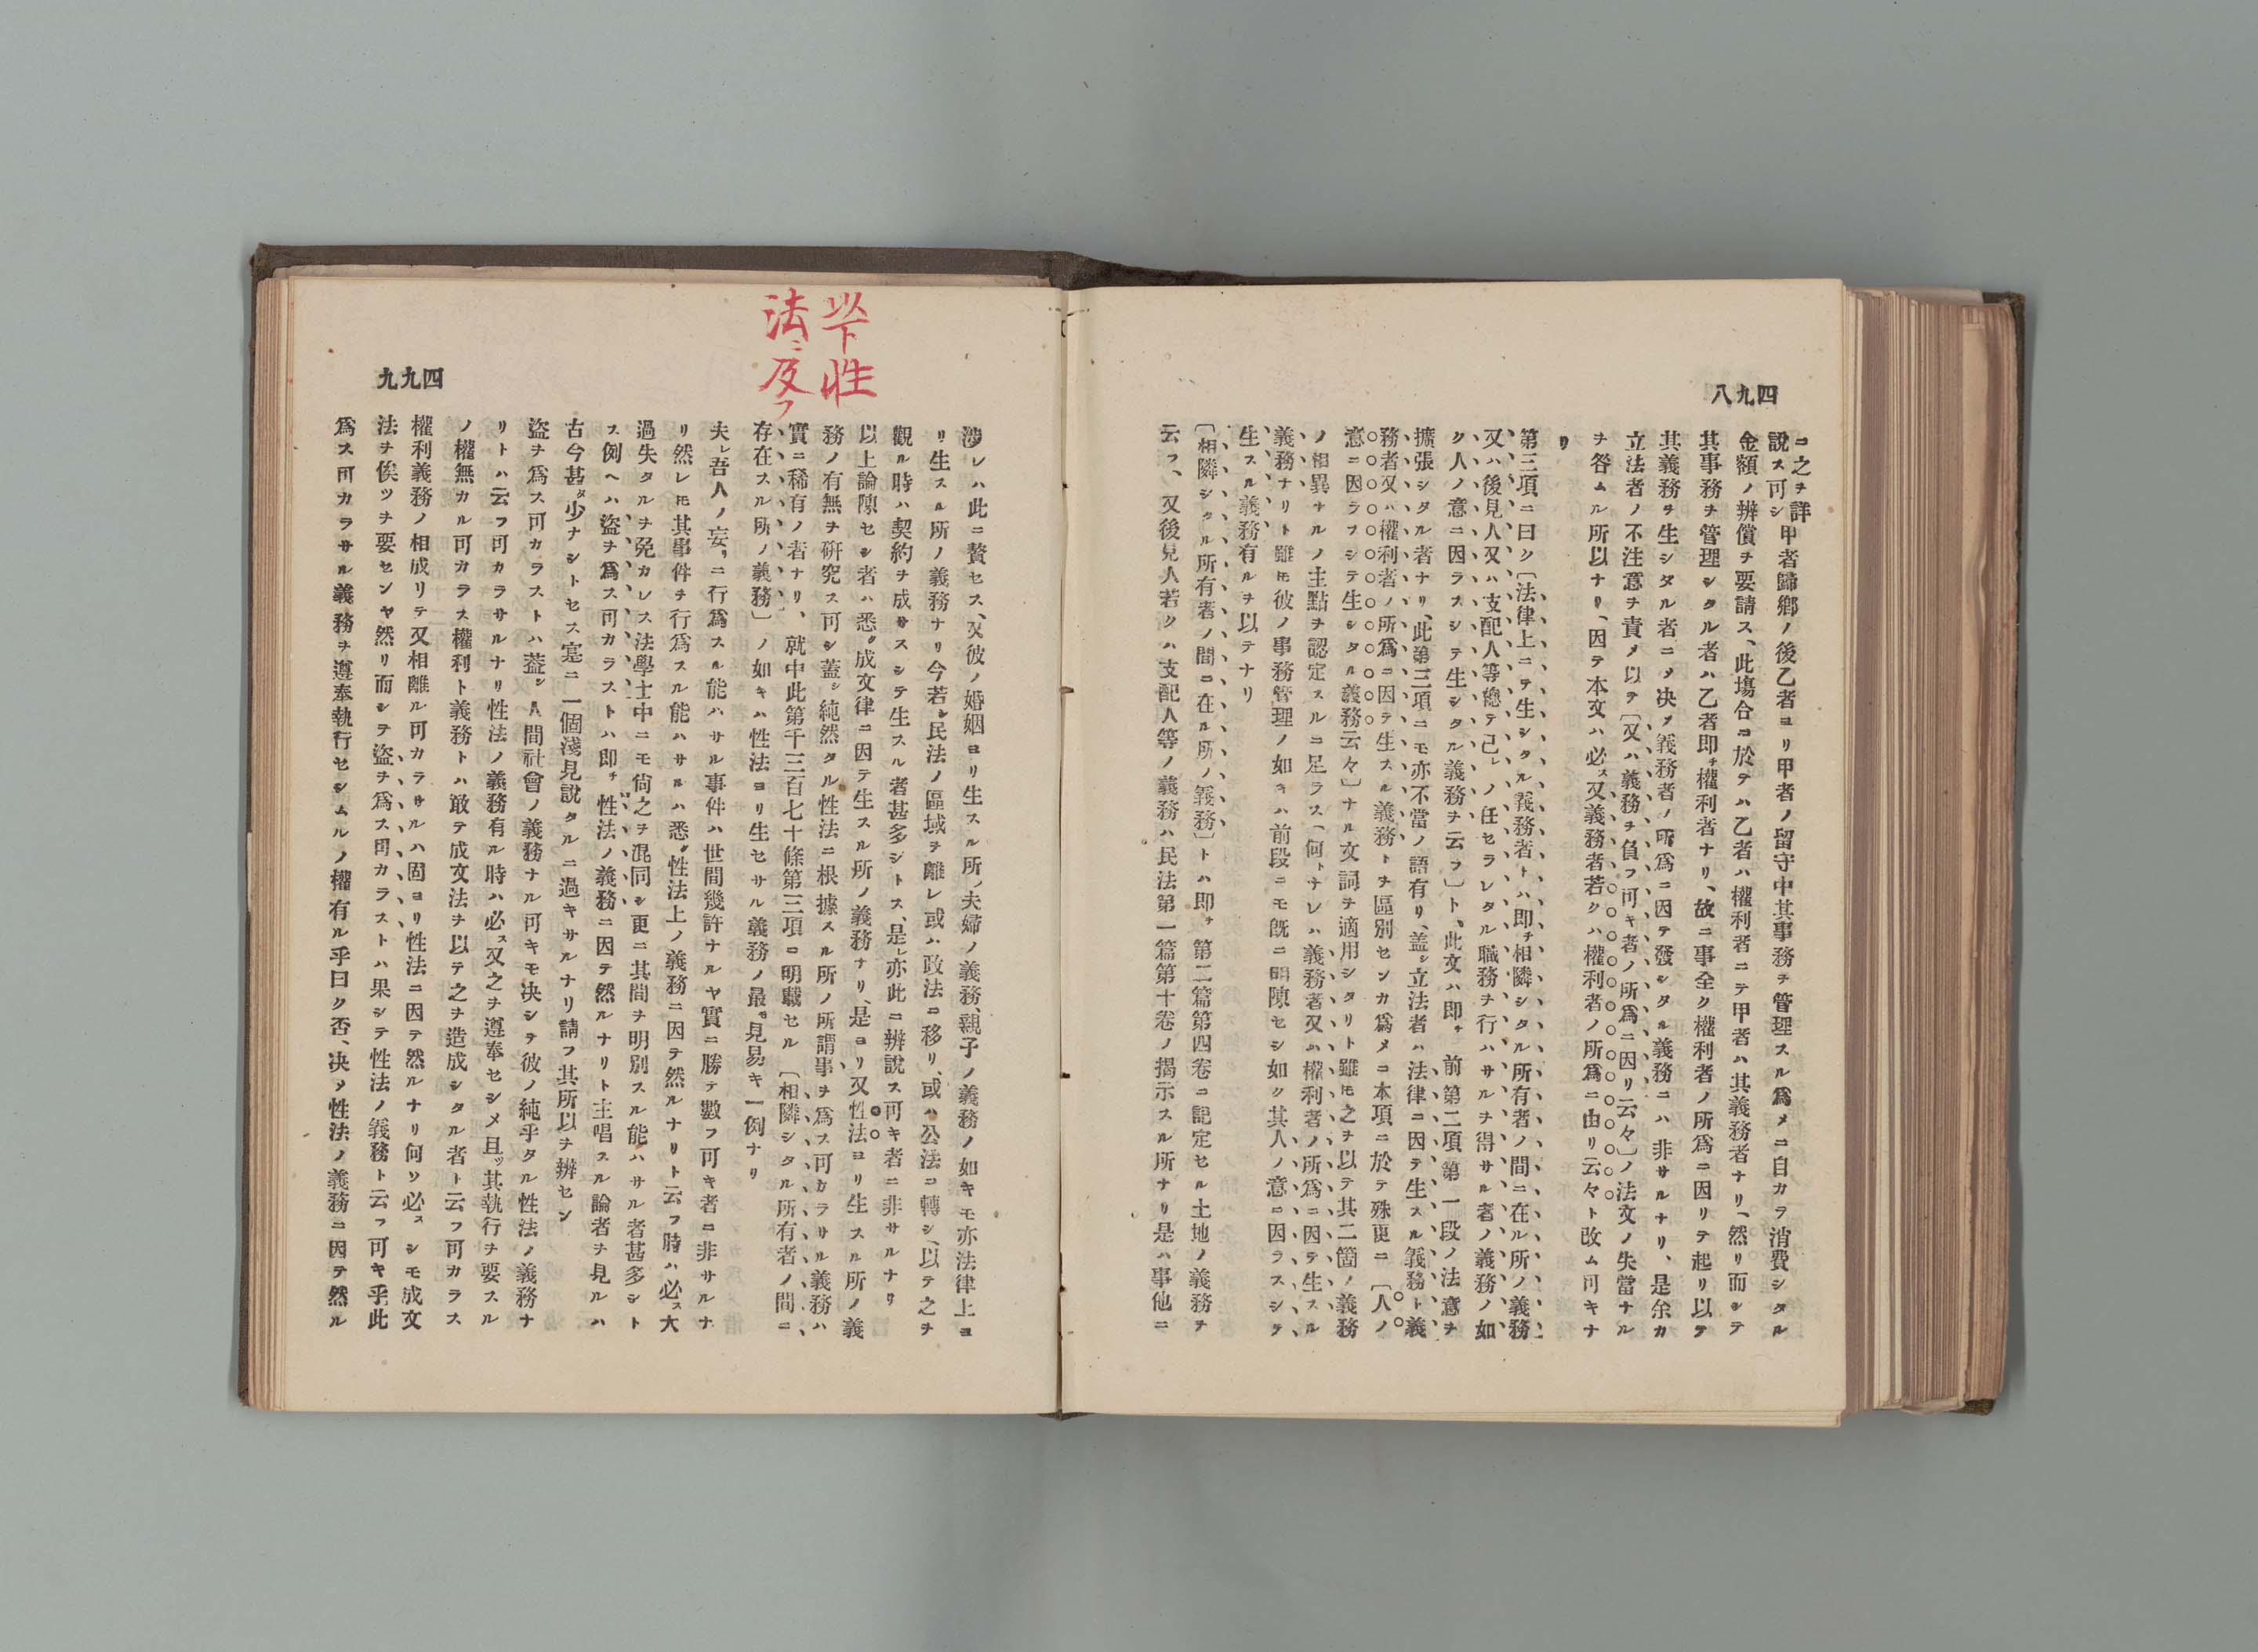 四九八
ニ之ヲ詳
說ス可シ甲者歸鄕ノ後乙者ヨリ甲者ノ留守中其事務ヲ管理スル爲メニ自カラ消費シタル
金額ノ辨償ヲ要請ス、此塲合ニ於テハ乙者ハ權利者ニテ甲者ハ其義務者ナリ、然リ而シテ
其事務ヲ管理シタル者ハ乙者卽チ權利者ナリ、故ニ事全ク權利者ノ所爲ニ因リテ起リ以テ
其義務ヲ生シタル者ニメ决メ義務者ノ所爲ニ因テ發シタル義務ニハ非サルナリ、是余カ
立法者ノ不注意ヲ責メ以テ〔又ハ義務ヲ負フ可キ者ノ所爲ニ因リ云々〕ノ法文ノ失當ナル
ヲ咎ムル所以ナリ、因テ本文ハ必ス又義務者若クハ權利者ノ所爲ニ由リ云々ト改ム可キナ
リ
第三項ニ曰ク〔法律上ニテ生シタル義務者トハ卽チ相隣シタル所有者ノ間ニ在ル所ノ義務
又ハ後見人又ハ支配人等總テ己レノ任セラレタル職務ヲ行ハサルヲ得サル者ノ義務ノ如
ク人ノ意ニ因ラスシテ生シタル義務ヲ云フ〕ト、此文ハ卽チ前第二項第一段ノ法意ヲ
擴張シタル者ナリ、此第三項ニモ亦不當ノ語有リ、盖シ立法者ハ法律ニ因テ生スル義務ト義
務者又ハ權利者ノ所爲ニ因テ生スル義務トヲ區別センカ爲メニ本項ニ於テ殊更ニ〔人ノ
意ニ因ラスシテ生シタル義務云々〕ナル文詞ヲ適用シタリト雖モ之ヲ以テ其二箇ノ義務
ノ相異ナルノ主點ヲ認定スルニ足ラス、何トナレハ義務者又ハ權利者ノ所爲ニ因テ生スル
義務ナリト雖モ彼ノ事務管理ノ如キハ前段ニモ既ニ明陳セシ如ク其人ノ意ニ因ラスシテ
生スル義務有ルヲ以テナリ
〔相隣シタル所有者ノ間ニ在ル所ノ義務〕トハ卽チ第二篇第四卷ニ記定セル土地ノ義務ヲ
云フ、又後見人若クハ支配人等ノ義務ハ民法第一篇第十卷ノ揭示スル所ナリ是ハ事他ニ
以下性
法ニ及フ
四九九
涉レハ此ニ贅セス、又彼ノ婚姻ヨリ生スル所ノ夫婦ノ義務、親子ノ義務ノ如キモ亦法律上ヨ
リ生スル所ノ義務ナリ今若シ民法ノ區域ヲ離レ或ハ政法ニ移リ、或ハ公法ニ轉シ、以テ之ヲ
觀ル時ハ契約ヲ成サスシテ生スル者甚多シトス、是レ亦此ニ辨說ス可キ者ニ非サルナリ
以上論陳セシ者ハ悉ク成文律ニ因テ生スル所ノ義務ナリ、是ヨリ又性法ヨリ生スル所ノ義
務ノ有無ヲ硏究ス可シ蓋シ純然タル性法ニ根據スル所ノ所謂事ヲ爲ス可カラサル義務ハ
實ニ稀有ノ者ナリ、就中此第千三百七十條第三項ニ明職セル〔相隣シタル所有者ノ間ニ
存在スル所ノ義務〕ノ如キハ性法ヨリ生セサル義務ノ最モ見易キ一例ナリ
夫レ吾人ノ妄リニ行爲スル能ハサル事件ハ世間幾許ナルヤ實ニ勝テ數フ可キ者ニ非サルナ
リ然レモ其事件ヲ行爲スル能ハサルハ悉ク性法上ノ義務ニ因テ然ルナリト云フ時ハ必ス大
過失タルヲ免カレス法學士中ニモ尙之ヲ混同シ更ニ其間ヲ明別スル能ハサル者甚多シト
ス例ヘハ盜ヲ爲ス可カラストハ卽チ性法ノ義務ニ因テ然ルナリト主唱スル論者ヲ見ルハ
古今甚タ少ナシトセス寔ニ一個淺見說タルニ過キサルナリ請フ其所以ヲ辨セン
盜ヲ爲ス可カラストハ葢シ人間社會ノ義務ナル可キモ决シテ彼ノ純乎タル性法ノ義務ナ
リトハ云フ可カラサルナリ性法ノ義務有ル時ハ必ス又之ヲ遵奉セシメ且ツ其執行ヲ要スル
ノ權無カル可カラス權利ト義務トハ敢テ成文法ヲ以テ之ヲ造成シタル者ト云フ可カラス
權利義務ノ相成リテ又相離ル可カラサルハ固ヨリ性法ニ因テ然ルナリ何ソ必スシモ成文
法ヲ俟ツヲ要センヤ然リ而シテ盜ヲ爲ス可カラストハ果シテ性法ノ義務ト云フ可キ乎此
爲ス可カラサル義務ヲ遵奉執行セシムルノ權有ル乎曰ク否、决メ性法ノ義務ニ因テ然ル